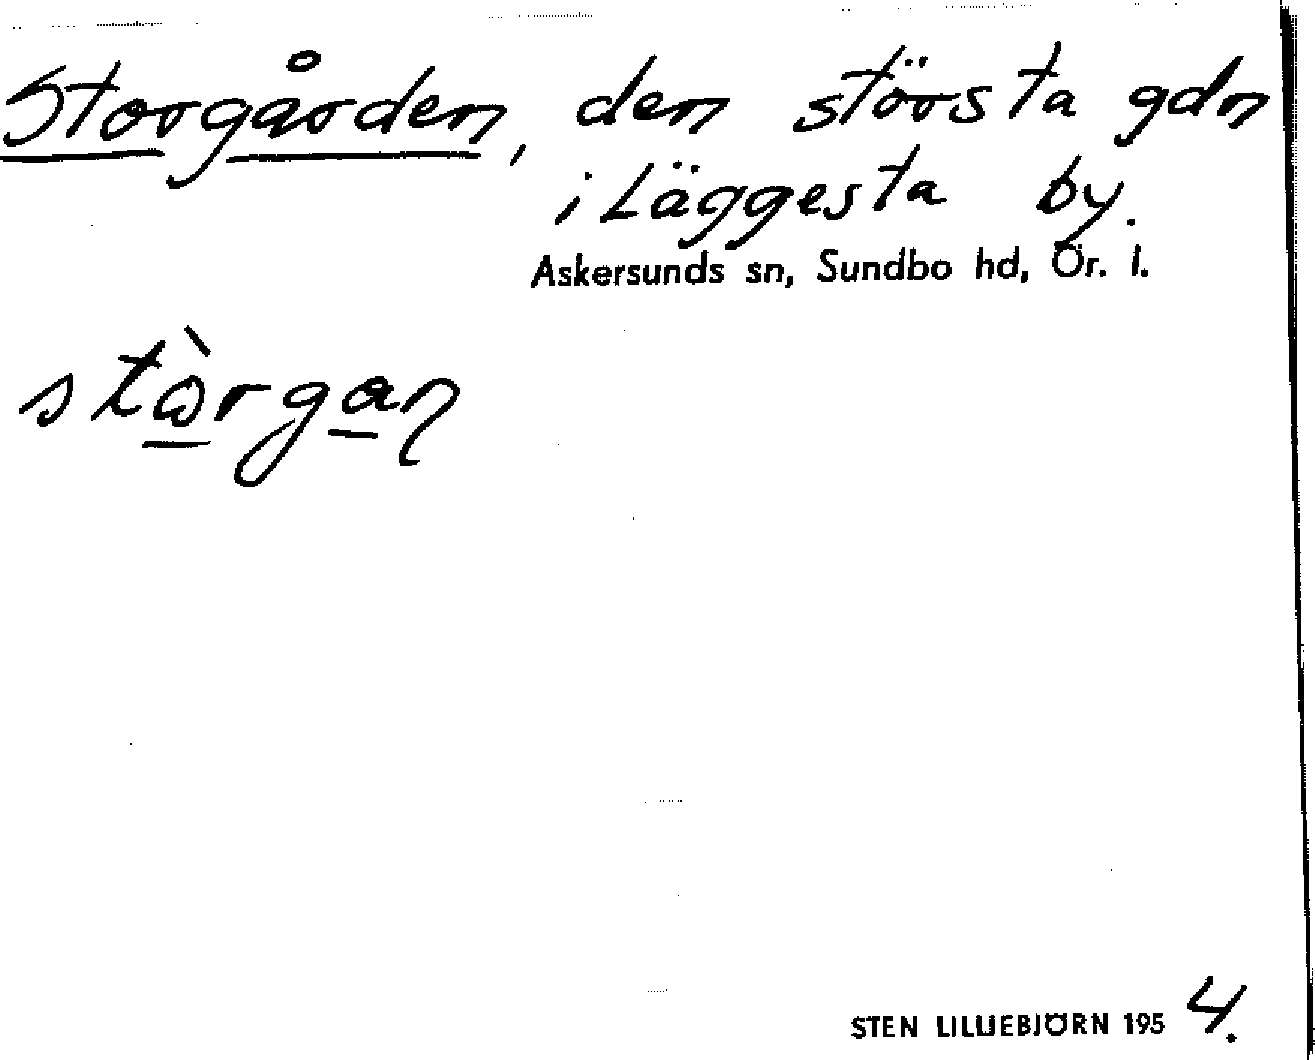 Storgården, den största gdn
i Läggesta by.
Askersunds sn, Sundbo hd, Ör. l.
stòrgan
STEN LILLIEBJÖRN 1954.